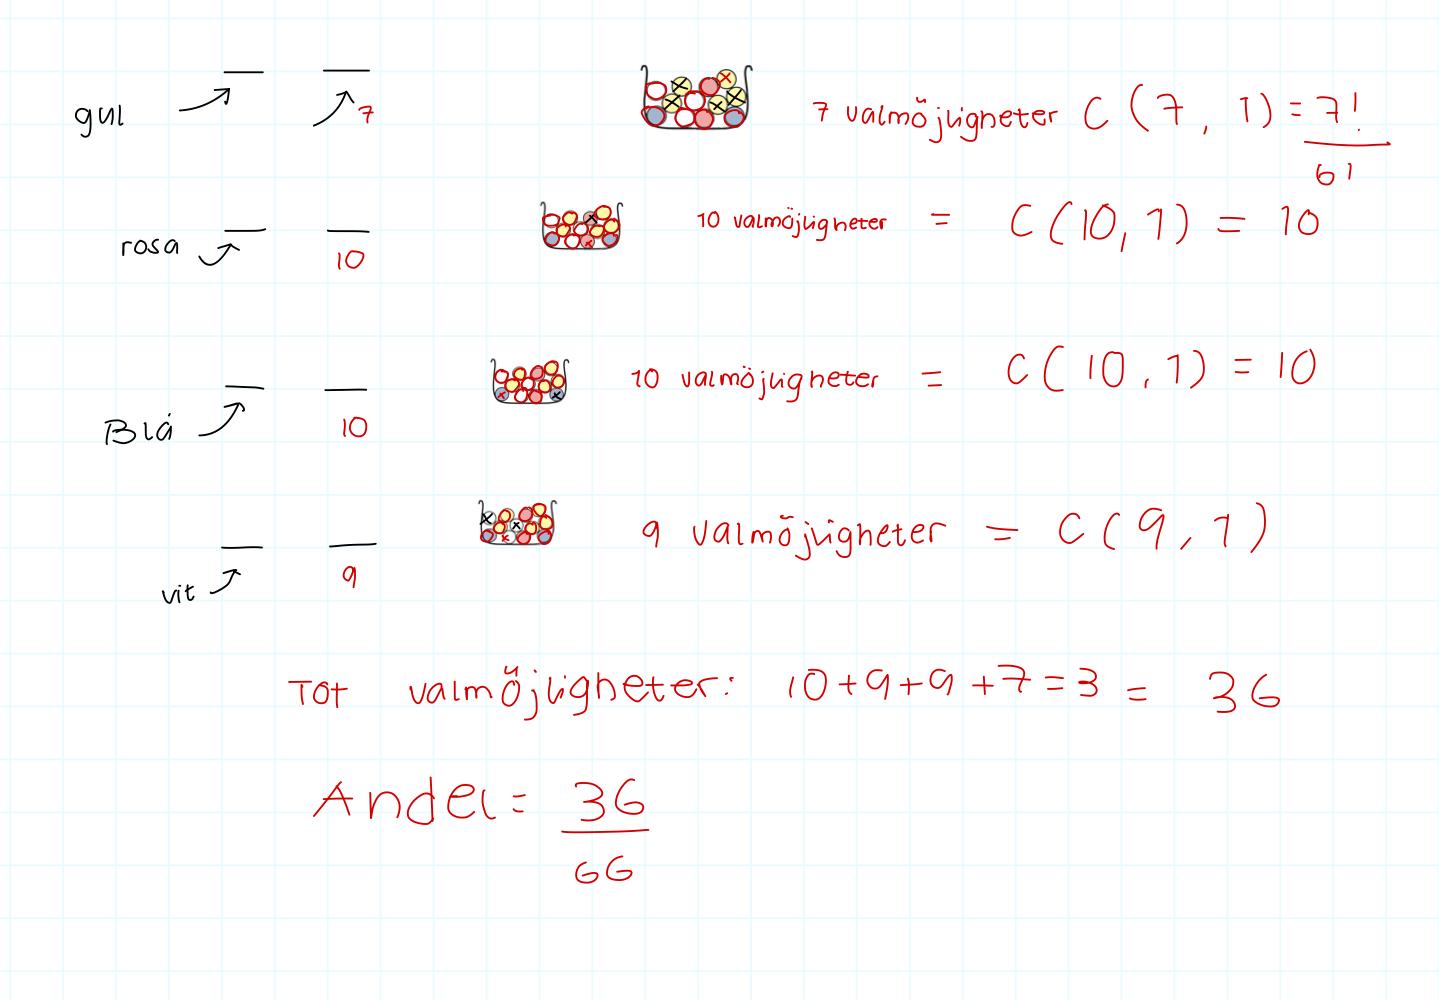 gul 7 7 valmöjligheter C(7, 1) = 7!
6!
rosa 10 10 valmöjligheter = C(10, 1) = 10
Blå 10 10 valmöjligheter = C(10, 1) = 10
vit 9 9 valmöjligheter = C(9, 1)
Tot valmöjligheter: 10+9+9+7=3 = 36
Andel = 36
66